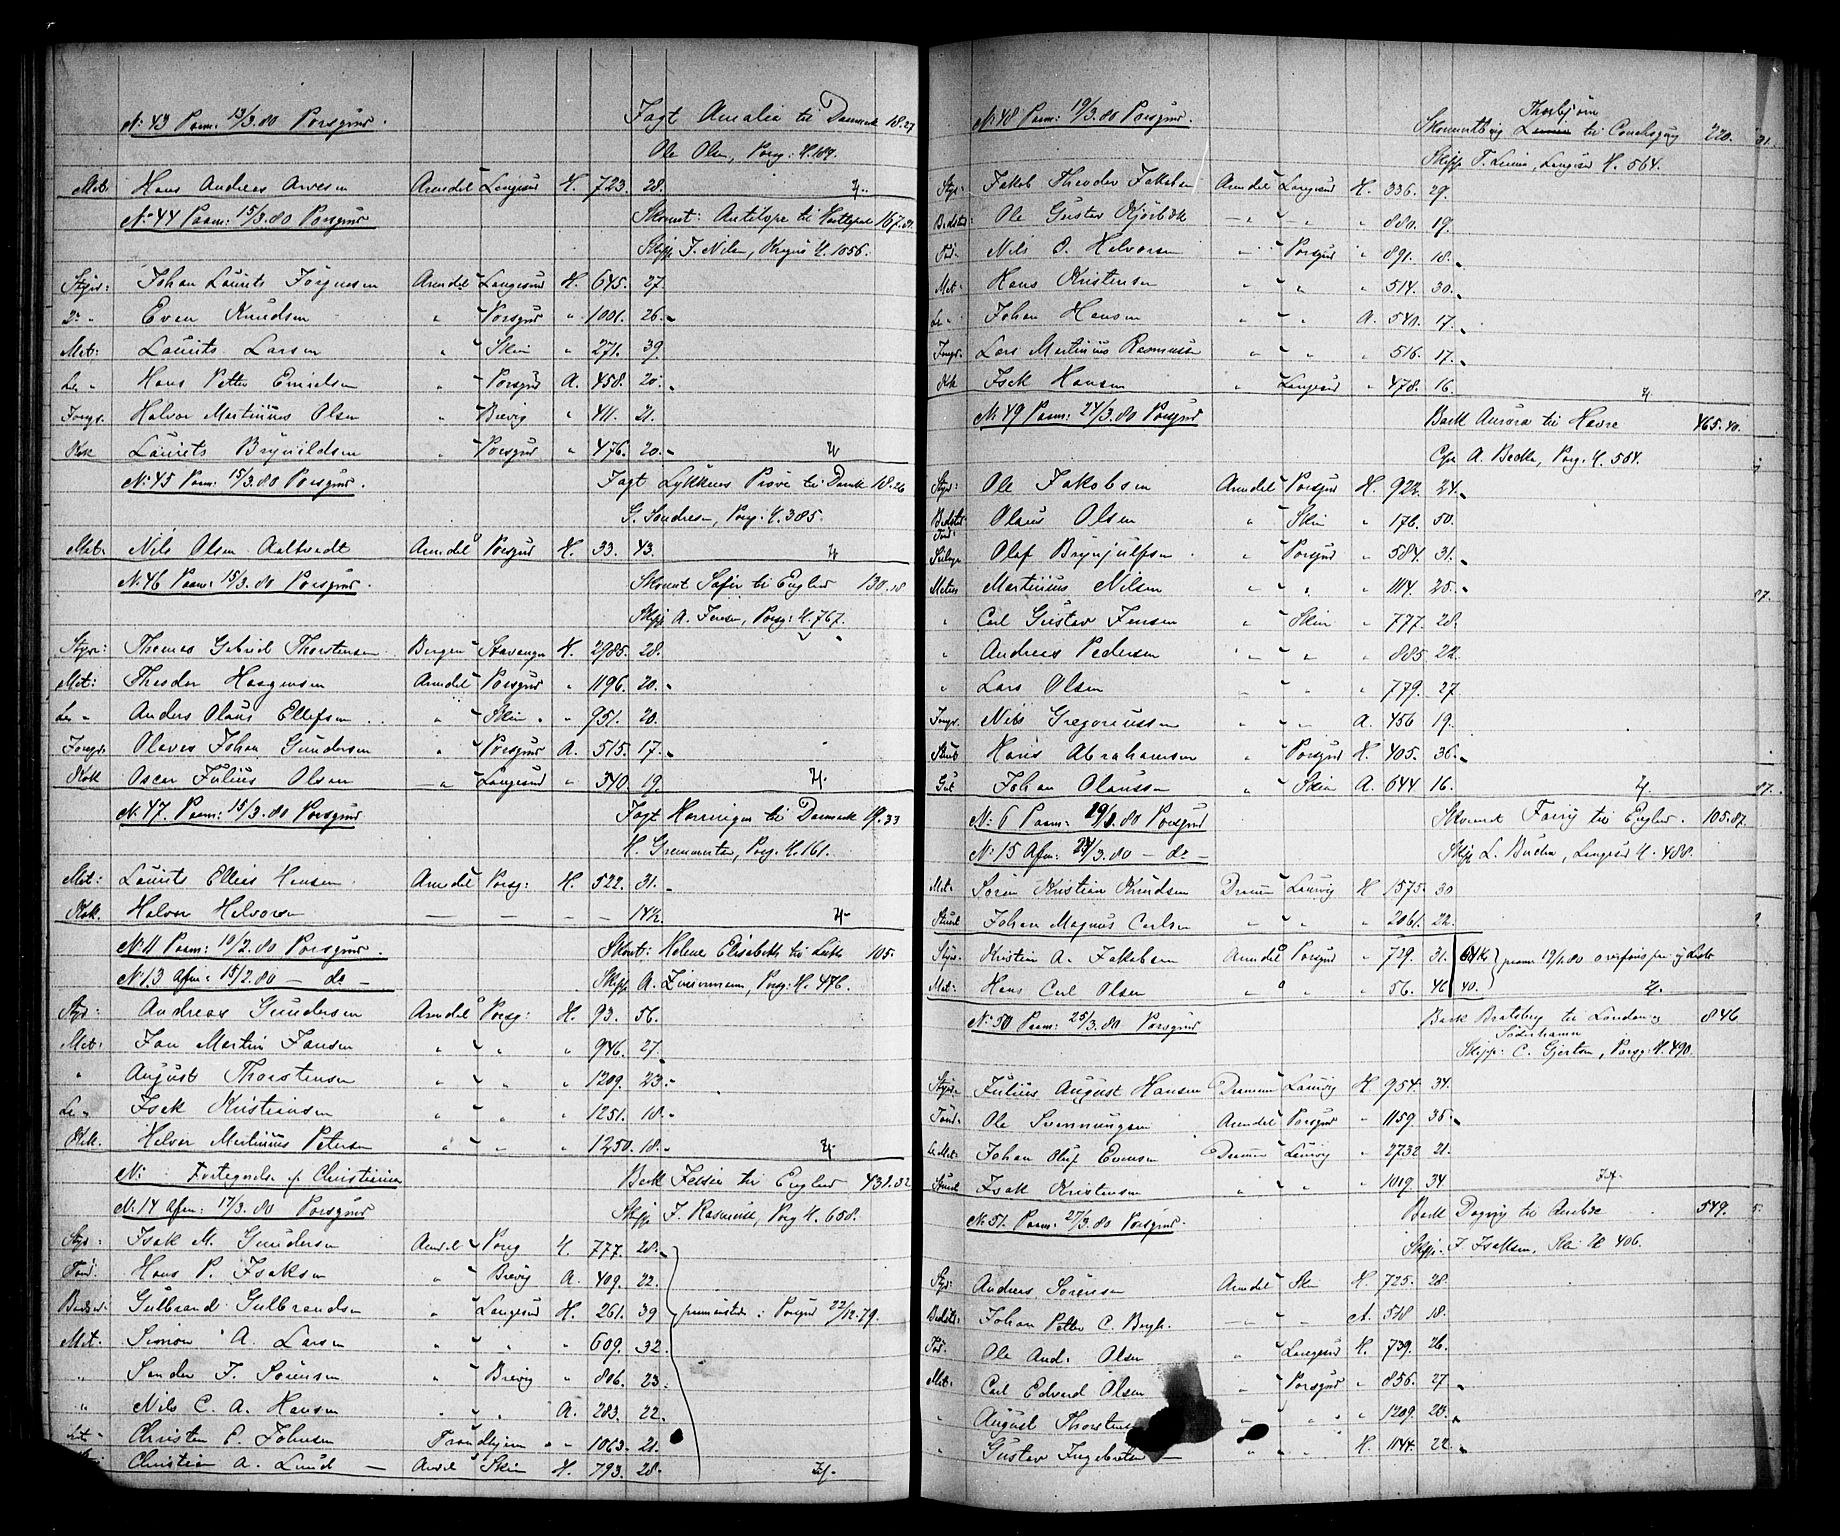 N: 43 Paam: 13/3.80 Porsgrund. Jagt Amalia til Danmark 18.27
Ole Olsen, Porsg: H. 109.
Mat: Hans Andreas Arvesen Arendal Langesund H. 723. 28. H.
N: 44 Paam: 15/3.80 Porsgrund Skonnt: Antilope til 167.31
Skipp J. Nilsen, Kragerø H. 1056.
Styr: Johan Laurits Jørgensen Arendal Langesund H. 645. 27.
2: " Even Knudsen " Porsgrund " 1001. 26. "
Mat: Laurits Larsen " Skien " 271. 39
Le " Hans Petter Emielsen " Porsgrund A. 458. 20. "
Jungs. Halvor Martinius Olsen " Brevig " 411. 21.
Kok Laurits Brynildsen " Porsgrund " 476. 20. "
N: 45 Paam: 15/3.80 Porsgrund. Jagt Lykkens Prøve til Danmk 18.26
G. Sondresen, Porsg. H. 385.
Mat: Nils Olsen Aaltvedt Arendal Porsgrund H. 33. 43. H
N: 46 Paam: 15/3.80 Porsgrund. Skonnt Safir til England 130.18
Skipp A. Jensen, Porsg: H. 767.
Styr: Thomas Gabriel Thorstensen Bergen Stavanger H. 2985. 28. "
Mat: Theodor Haagensen Arendal Porsgrund " 1196. 20. "
Le " Anders Olaus Ellefsen " Skien " 951. 20.
Jungs. Olaves Johan Gundersen " Porsgrund A. 515. 17. "
Kok Oscar Julius Olsen " Langesund " 540. 19. H.
N: 47. Paam: 15/3.80 Porsgrund Jagt Henningen til Danmark 19.33
H. Grummerter, Porsg. H. 161.
Mat: Laurits Ellias Hansen Arendal Porsg: H. 522. 31. "
Kok. Halvor Halvorsen — — — — 14½. H.
N: 11 Paam: 10/2.80 Porsgrund. Skonnt: Helene Elisabeth til Leith 105.
N: 13 Afm: 15/2.80 — do — Skipp A. Zimmermann, Porsg: H. 476.
Styr: Andreas Gundersen Arendal Porsg: H. 93. 56.
Mat: Jan Martin Jansen " " " 946. 27.
" August Thorstensen " " " 1209. 23. "
Le " Isak Kristiansen " " " 1251. 18. "
Kok. Halvor Martinius Petersen " " " 1250. 18. " H.
N: Fortegnelse f. Christiania Bark Jessie til England 431.32
N: 14 Afm: 17/3.80 Porsgrund Skipp J. Rasmussen, Porsg H. 658.
Styr: Isak M. Gundersen Arendal Porsg H. 777. 28. "
Tmd. Hans P. Isaksen " Brevig A. 409. 22.
Bedsm. Gulbrand Gulbrandsen " Langesund H. 261. 39 paamønstrede i Porsgrund 22/12.79.
Mat: Simon A. Larsen " " " 609. 32.
" Sander J. Sørensen " Brevig " 806. 23.
" Nils C. A. Hansen " " A. 283. 22.
Let " Christen P. Johnsen Trondhjem " " 1063. 21.
Christian A. Lund — Arendal Skien H. 793. 28. H.
N: 48 Paam: 19/3.80 Porsgrund. Thorbjørn
Skonnertbrig til 220.
Skipp T. Lunis, Langesund H. 564.
Styr: Jakob Theodor Jakobsen Arendal Langesund H. 336. 29.
Bedstm: Ole Gustav Kjørbæk — " — " " 880. 19.
Tmd. Nils O. Halvorsen " Porsgrund " 891. 18. "
Mat: Hans Kristensen " " " 514. 30. "
Le " Johan Hansen " " A. 540. 17. "
Jungs. Lars Martinius Rasmussen " " " 516. 17. "
Kok Isak Hansen " Langesund " 478. 16. H.
N: 49 Paam: 24/3.80 Porsgrund Bark Aurora til Havre 465.40.
Cpt A. Bedka, Porsg. H. 564.
Styr: Ole Jakobsen Arendal Porsgrund H. 922. 24. "
Bedstm. Tmd: Olaus Olsen " Skien " 176. 50.
Seilm. Olaf Brynjulfsen " Porsgrund " 584. 31. "
Matros Martinius Nilsen " " " 1114. 25. "
" Carl Gustav Jensen " Skien " 777. 28.
" Andreas Pedersen " " " 885 22.
" Lars Olsen " " " 779. 27.
Jungs. Nils Gregoriussen " " A. 456 19.
Stuert Hans Abrahamsen " Porsgrund H. 405. 36. "
Gut Johan Olaussen " Skien A. 644 16. H.
N: 6 Paam: 29/1.80 Porsgrund Skonnert Fanny til England. 105.87.
N: 15 Afm: 24/3.80 — do — Skipp L. Buchn, Langesund H. 488.
Mat: Søren Kristian Knudsen Drammen Laurvig H 1575. 30
Stuert Johan Magnus Carlsen " " " 2061. 22.
Styr: Kristen A. Jakobsen Arendal Porsgrund " 729. 31.
Mat: Hans Carl Olsen " " " 56. 46 40. H.
N: 50 Paam: 25/3.80 Porsgrund Bark Bratsberg til London og 846
Söderhamn
Skipp: C. Gjertsen, Porsg: H. 490.
Styr: Julius August Hansen Drammen Laurvig H 954. 34.
Tmd. Ole Svennungsen Arendal Porsgrund " 1159. 35. "
Le Mat: Johan Oluf Evensen Drammen Laurvig " 2732 21.
Stuert Isak Kristensen " " " 1019. 34 H.
N: 51. Paam: 27/3.80 Porsgrund. Bark Dagny til 549.
Skipp: J. Isaksen, Skien H 406.
Styr: Anders Sørensen Arendal Skien H. 725. 28.
Bedstm: Johan Petter C. Bergh. " " A. 518 18.
Tmd. Ole And. Olsen " Langesund H. 739. 26.
Mat: Carl Edvard Olsen " Porsgrund " 856. 27 "
" August Thorstensen " " " 1209. 23. "
" Gustav Ingebretsen — " " H. 1144. 22. "